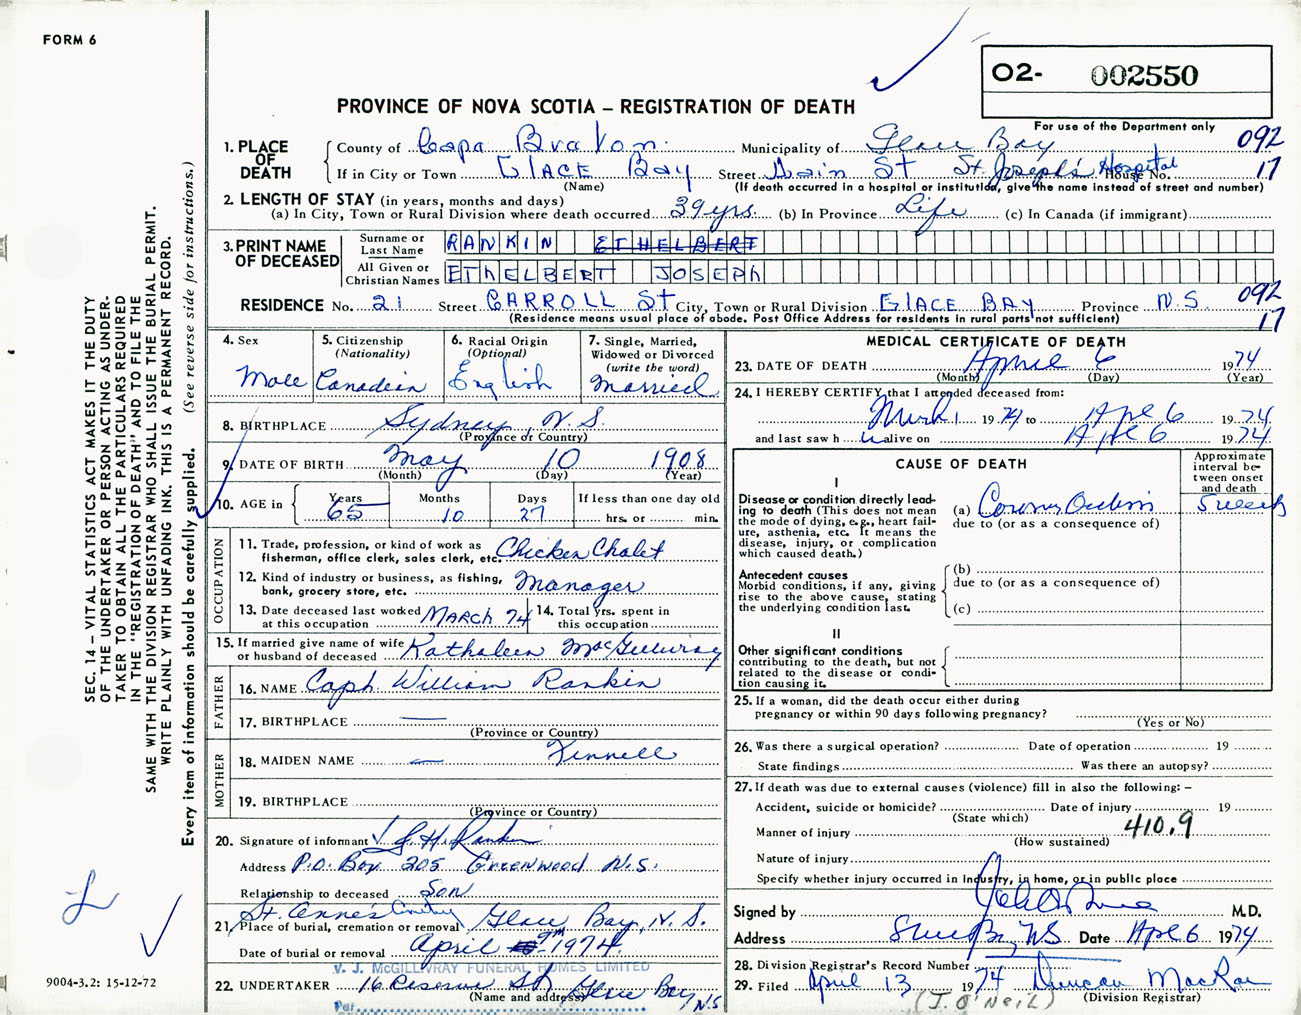 FORM 6
O2- 002550
PROVINCE OF NOVA SCOTIA – REGISTRATION OF DEATH
For use of the Department only
1. PLACE OF DEATH
County of Cape Breton Municipality of Glace Bay 092
If in City or Town GLACE Bay Street Main St St. Joseph's Hospital House No. 17
(Name) (If death occurred in a hospital or institution, give the name instead of street and number)
2. LENGTH OF STAY (in years, months and days)
(a) In City, Town or Rural Division where death occurred 39 yrs. (b) In Province Life (c) In Canada (if immigrant)
3. PRINT NAME OF DECEASED
Surname or Last Name RANKIN ETHELBERT
All Given or Christian Names ETHELBERT JOSEPH
RESIDENCE No. 21 Street CARROLL St City, Town or Rural Division GLACE BAY Province N.S. 092
(Residence means usual place of abode. Post Office Address for residents in rural parts not sufficient) 17
4. Sex
Male
5. Citizenship
(Nationality)
Canadian
6. Racial Origin
(Optional)
English
7. Single, Married, Widowed or Divorced
(write the word)
Married
8. BIRTHPLACE Sydney, N.S.
(Province or Country)
9. DATE OF BIRTH May 10 1908
(Month) (Day) (Year)
10. AGE in
Years Months Days If less than one day old
65 10 27 hrs. or min.
OCCUPATION
11. Trade, profession, or kind of work as
fisherman, office clerk, sales clerk, etc. Chicken Chalet
12. Kind of industry or business, as fishing,
bank, grocery store, etc. Manager
13. Date deceased last worked
at this occupation MARCH 74
14. Total yrs. spent in
this occupation
15. If married give name of wife
or husband of deceased Kathaleen MacGillivray
FATHER
16. NAME Capt. William Rankin
17. BIRTHPLACE —
(Province or Country)
MOTHER
18. MAIDEN NAME — Kinnell
19. BIRTHPLACE
(Province or Country)
20. Signature of informant Rankin
Address P.O. Box 205 Greenwood N.S.
Relationship to deceased Son
St. Anne's Cemetery Glace Bay, N.S.
21. Place of burial, cremation or removal
Date of burial or removal April 9th 1974.
V. J. McGILLIVRAY FUNERAL HOMES LIMITED
22. UNDERTAKER 16 Reserve St. Glace Bay N.S.
(Name and address)
Per
MEDICAL CERTIFICATE OF DEATH
23. DATE OF DEATH April 6 1974
(Month) (Day) (Year)
24. I HEREBY CERTIFY that I attended deceased from:
March 1 1974 to Apl 6 1974
and last saw h im alive on Apl 6 1974
CAUSE OF DEATH
Approximate interval between onset and death
I
Disease or condition directly leading to death (This does not mean the mode of dying, e.g., heart failure, asthenia, etc. It means the disease, injury, or complication which caused death.)
(a) 5 weeks
due to (or as a consequence of)
Antecedent causes
Morbid conditions, if any, giving rise to the above cause, stating the underlying condition last.
(b)
due to (or as a consequence of)
(c)
II
Other significant conditions
contributing to the death, but not related to the disease or condition causing it.
25. If a woman, did the death occur either during
pregnancy or within 90 days following pregnancy?
(Yes or No)
26. Was there a surgical operation? Date of operation 19
State findings Was there an autopsy?
27. If death was due to external causes (violence) fill in also the following: –
Accident, suicide or homicide? Date of injury 19
(State which)
Manner of injury 410.9
(How sustained)
Nature of injury
Specify whether injury occurred in Industry, in home, or in public place
Signed by M.D.
Address N.S. Date Apl 6 1974
28. Division Registrar's Record Number
29. Filed April 13 1974 Duncan MacRae
(J. O'NeiL) (Division Registrar)
SEC. 14 – VITAL STATISTICS ACT MAKES IT THE DUTY
OF THE UNDERTAKER OR PERSON ACTING AS UNDER-
TAKER TO OBTAIN ALL THE PARTICULARS REQUIRED
IN THE "REGISTRATION OF DEATH" AND TO FILE THE
SAME WITH THE DIVISION REGISTRAR WHO SHALL ISSUE THE BURIAL PERMIT.
WRITE PLAINLY WITH UNFADING INK. THIS IS A PERMANENT RECORD.
Every item of information should be carefully supplied. (See reverse side for instructions.)
9004-3.2: 15-12-72